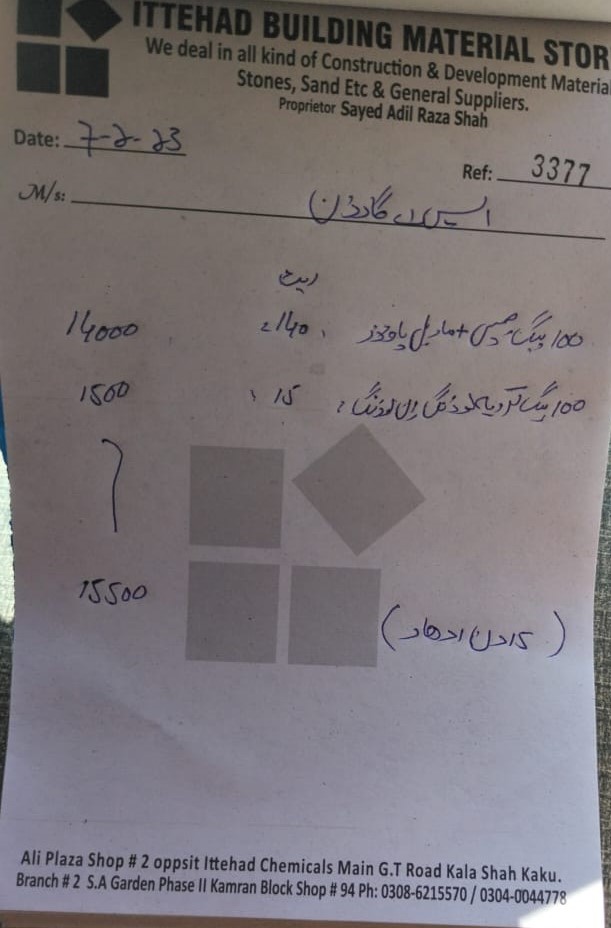 ITTEHAD BUILDING MATERIAL STOR
We deal in all kind of Construction & Development Material
Stones, Sand Etc & General Suppliers.
Proprietor Sayed Adil Raza Shah
Date: 7-2-23
Ref: 3377
M/s: ایس اے گارڈن
ریٹ
100 بیگ چپس + ماربل پاوڈر 140 14000
100 بیگ کرایہ لوڈنگ ان لوڈنگ 15 1500
15500
(15 دن ادھار)
Ali Plaza Shop # 2 oppsit Ittehad Chemicals Main G.T Road Kala Shah Kaku.
Branch # 2 S.A Garden Phase II Kamran Block Shop # 94 Ph: 0308-6215570 / 0304-0044778